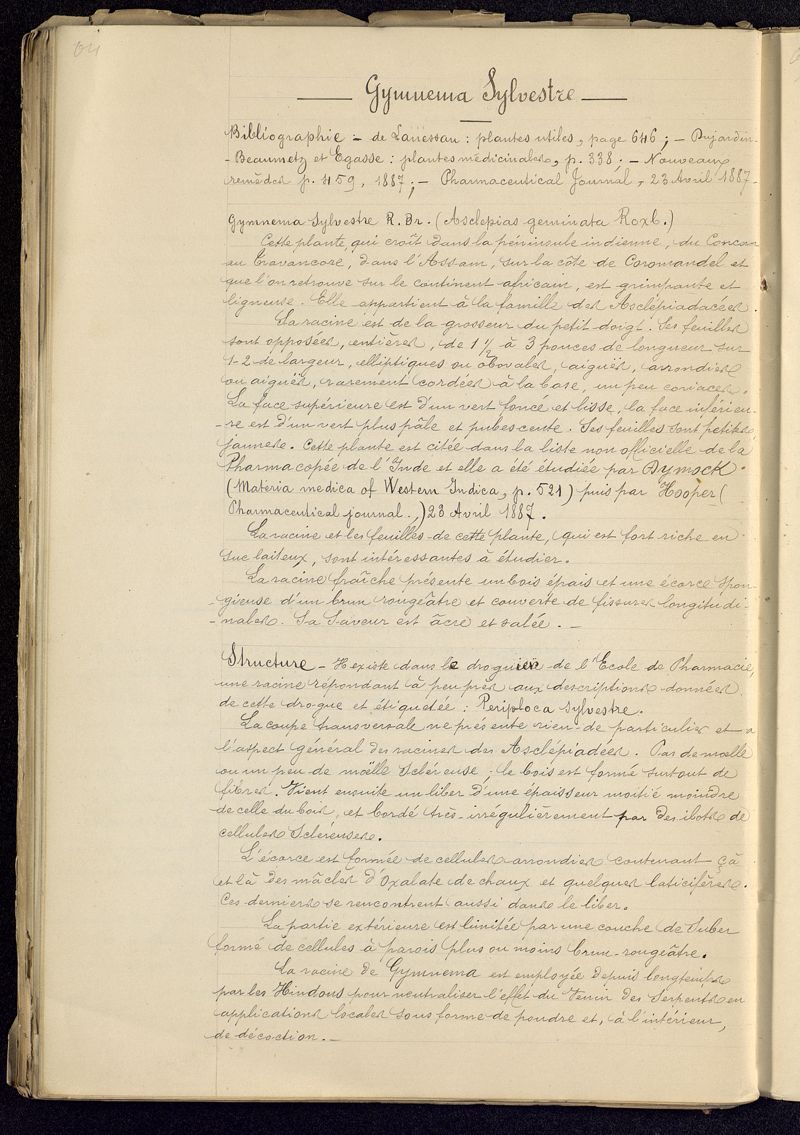 64
Gymnema Sylvestre
Bibliographie :- de Lanessan : plantes utiles, page 646 ; - Dujardin-
-Beaumetz et Egasse : plantes médicinales, p. 338 ; - Nouveaux
remèdes p. 459, 1887 ; - Pharmaceutical Journal, 23 Avril 1887-
Gymnema Sylvestre R. Br. (Asclepias geminata Roxb.)
Cette plante, qui croît dans la péninsule indienne, du Concan
au Travancore, dans l'Assam, sur la côte de Coromandel et
que l'on retrouve sur le continent africain, est grimpante et
ligneuse. Elle appartient à la famille des Asclépiadacées.
La racine est de la grosseur du petit doigt. Ses feuilles
sont opposées, entières, de 1 1/2 à 3 pouces de longueur sur
1-2 de largeur, elliptiques ou obovales, aiguës, arrondies
ou aiguës, rarement cordées à la base, un peu coriaces.
La face supérieure est d'un vert foncé et lisse, la face inférieu-
-re est d'un vert plus pâle et pubescente. Ses feuilles sont petites
jaunes. Cette plante est citée dans la liste non officielle de la
Pharmacopée de l'Inde et elle a été étudiée par Dymock
(Materia medica of Western Indica, p. 521) puis par Hooper (
Pharmaceutical journal.,) 23 Avril 1887.
La racine et les feuilles de cette plante, qui est fort riche en
suc laiteux, sont intéressantes à étudier.
La racine fraîche présente un bois épais et une écorce spon-
gieuse d'un brun rougeâtre et couverte de fissures longitudi-
-nales. Sa saveur est âcre et salée. -
Structure - Il existe dans le droguier de l'Ecole de Pharmacie,
une racine répondant à peu près aux descriptions données
de cette drogue et étiquetée : Periploca sylvestre.
La coupe transversale ne présente rien de particulier et a
l'aspect général des racines des Asclépiadées. Pas de moëlle
ou un peu de moëlle scléreuse ; le bois est formé surtout de
fibres. Vient ensuite un liber d'une épaisseur moitié moindre
de celle du bois, et bordé très-irrégulièrement par des ilots de
cellules scléreuses.
L'écorce est formée de cellules arrondies contenant çà
et là des mâcles d'Oxalate de chaux et quelques laticifères.
Ces derniers se rencontrent aussi dans le liber.
La partie extérieure est limitée par une couche de Suber
formé de cellules à parois plus ou moins brun-rougeâtre.
La racine de Gymnema est employée depuis longtemps
par les Hindous pour neutraliser l'effet du Venin des Serpents en
applications locales sous forme de poudre et, à l'intérieur,
de décoction. -